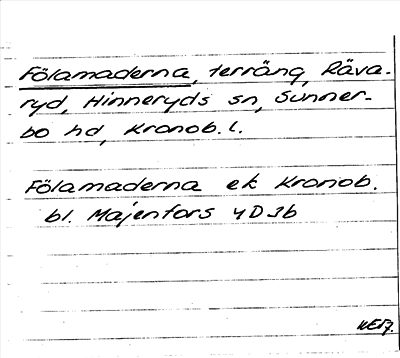 Fölamaderna, terräng, Räva-
ryd, Hinneryds sn, Sunner-
bo hd, Kronob. l.
Fölamaderna ek Kronob.
bl. Majenfors 4D3b